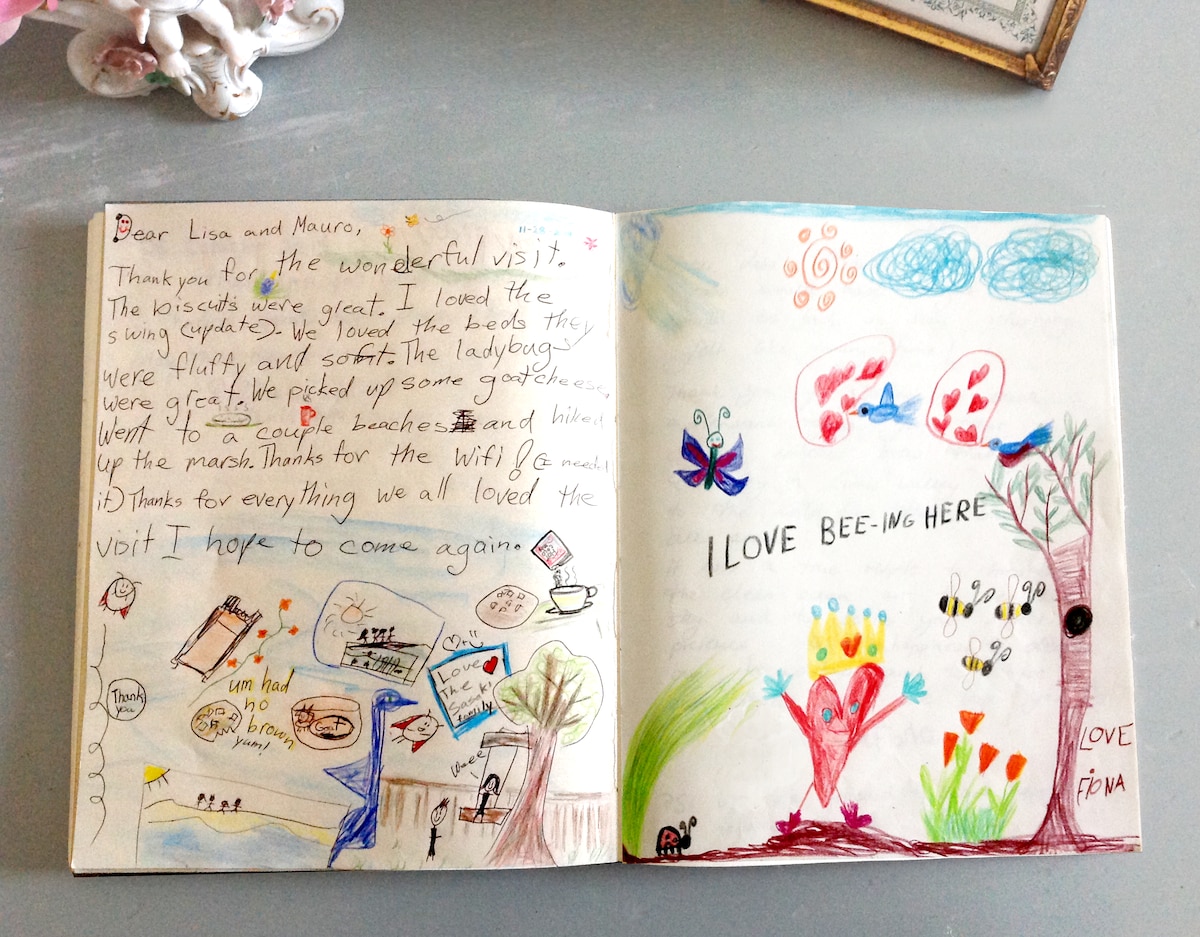 Dear Lisa and Mauro,
Thank you for the wonderful visit.
The biscuits were great. I loved the
swing (update). We loved the beds they
were fluffy and soft. The ladybugs
were great. We picked up some goat cheese,
Went to a couple beaches and hiked
up the marsh. Thanks for the wifi! (I need
it) Thanks for everything we all loved the
visit I hope to come again.
Thank
you
um had
no
brown
yum!
Love
The
family
Weee
I LOVE BEE-ING HERE
LOVE
FIONA